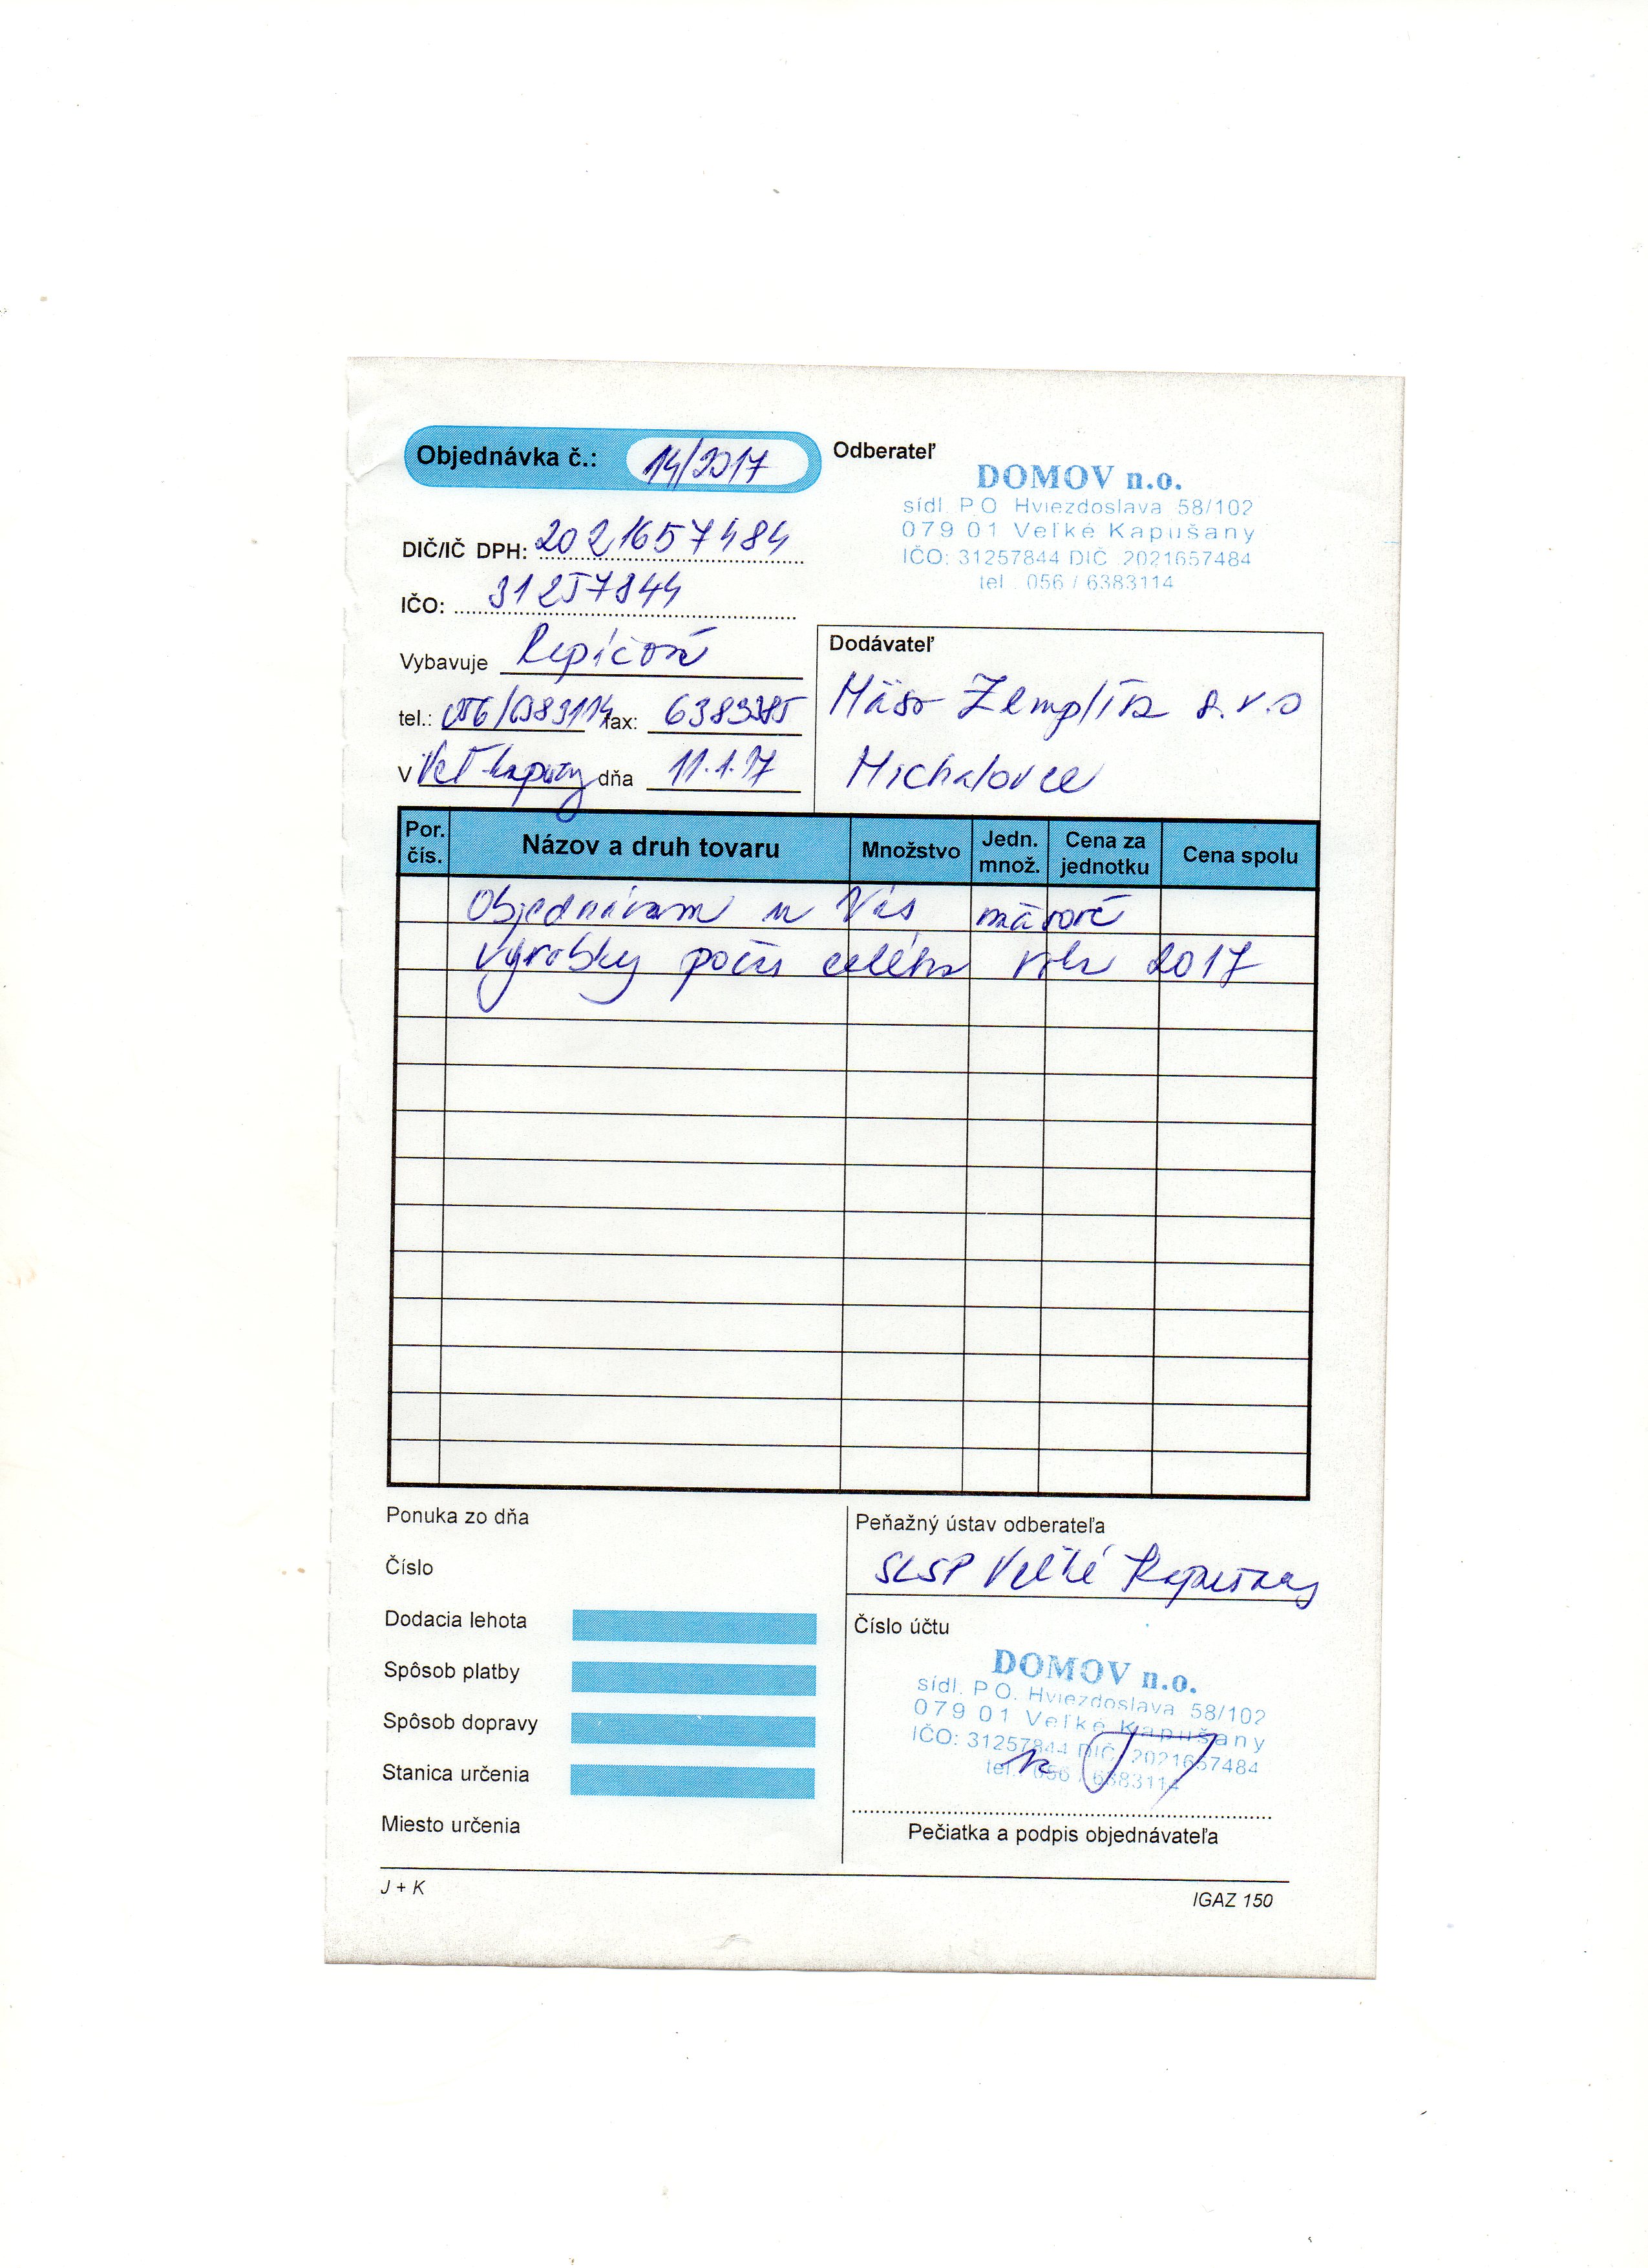 Objednávka č.: 14/2017
DIČ/IČ DPH: 2021657484
IČO: 31257844
Vybavuje Repičová
tel.: 056/6383114 fax: 6383385
V Veľ. Kapušany dňa 11.1.17
Odberateľ
DOMOV n.o.
sídl. P.O. Hviezdoslava 58/102
079 01 Veľké Kapušany
IČO: 31257844 DIČ 2021657484
tel.: 056 / 6383114
Dodávateľ
Mäso Zemplín s.r.o
Michalovce
Por. čís. Názov a druh tovaru Množstvo Jedn. množ. Cena za jednotku Cena spolu
Objednávam u Vás mäsové
výrobky počas celého roku 2017
Ponuka zo dňa
Číslo
Dodacia lehota
Spôsob platby
Spôsob dopravy
Stanica určenia
Miesto určenia
Peňažný ústav odberateľa
SLSP Veľké Kapušany
Číslo účtu
DOMOV n.o.
sídl. P.O. Hviezdoslava 58/102
079 01 Veľké Kapušany
IČO: 31257844 DIČ 2021657484
tel.: 056 / 6383114
Pečiatka a podpis objednávateľa
J + K
IGAZ 150